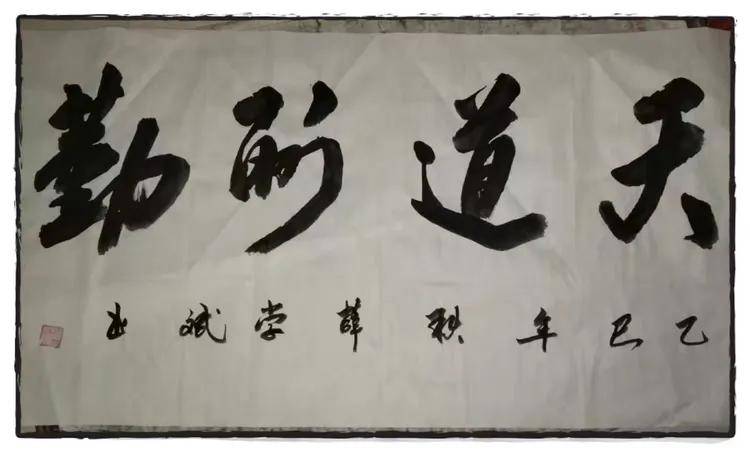 天道酬勤
乙巳年秋薛学斌书